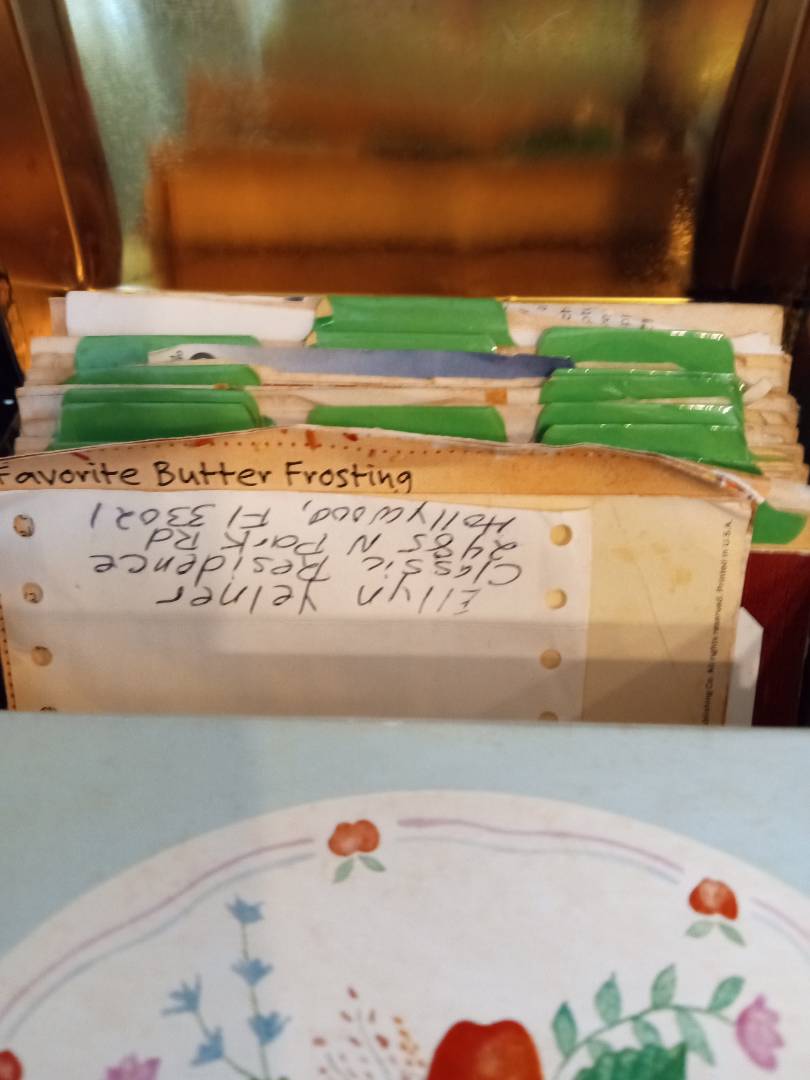 Favorite Butter Frosting
Ellyn Yelner
Classic Residence
2485 N Park Rd
Hollywood, Fl 33021
blishing Co. All rights reserved. Printed in U.S.A.